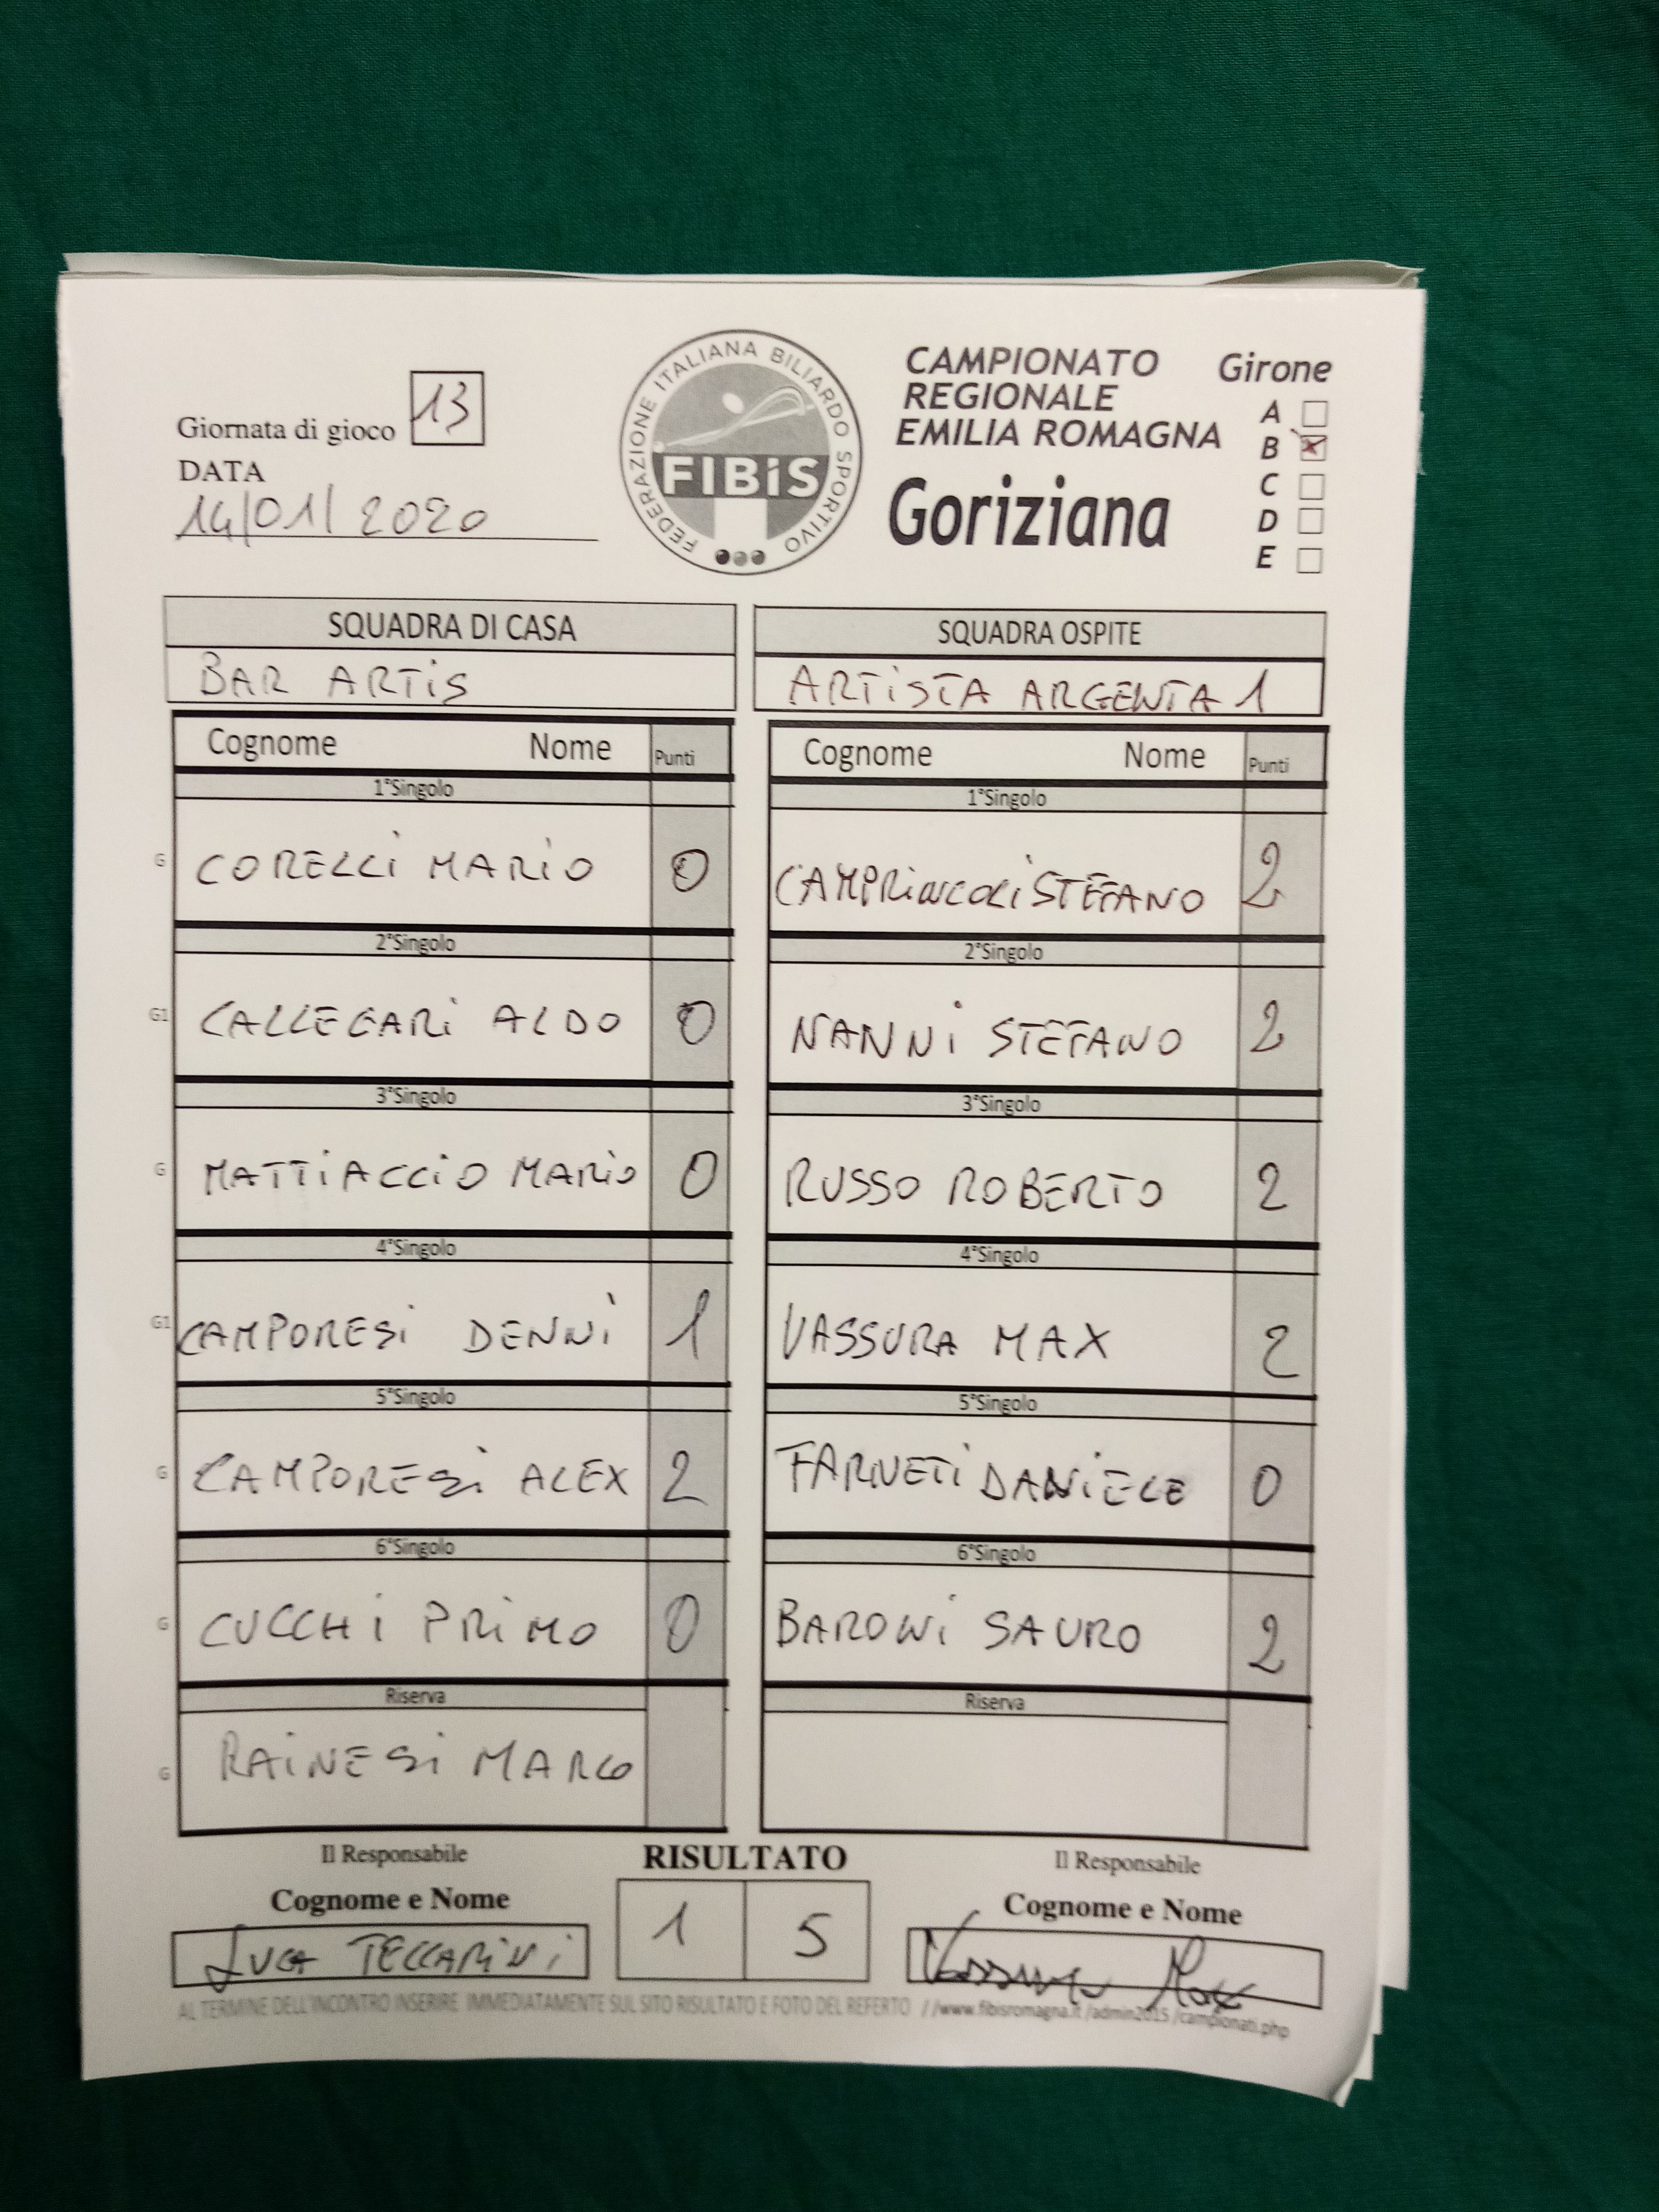 Giornata di gioco 13
DATA
14/01/2020
FEDERAZIONE ITALIANA BILIARDO SPORTIVO
FIBiS
CAMPIONATO
REGIONALE
EMILIA ROMAGNA
Goriziana
Girone
A
B
C
D
E
SQUADRA DI CASA
BAR ARTiS
SQUADRA OSPITE
ARTiSTA ARGENTA 1
Cognome Nome Punti
Cognome Nome Punti
1°Singolo
1°Singolo
G CORELLi MARiO 0
CAMPRiNCOLi STEFANO 2
2°Singolo
2°Singolo
G1 CALLEGARi ALDO 0
NANNi STEFANO 2
3°Singolo
3°Singolo
G MATTiACCiO MARiO 0
RUSSO ROBERTO 2
4°Singolo
4°Singolo
G1 CAMPORESi DENNi 1
VASSURA MAX 2
5°Singolo
5°Singolo
G CAMPORESi ALEX 2
FARNETi DANiELE 0
6°Singolo
6°Singolo
G CUCCHi PRiMO 0
BARONi SAURO 2
Riserva
Riserva
G RAiNESi MARCO
Il Responsabile
RISULTATO
Il Responsabile
Cognome e Nome
1 5
Cognome e Nome
LUCA TECCARiNi
Vassura Max
AL TERMINE DELL'INCONTRO INSERIRE IMMEDIATAMENTE SUL SITO RISULTATO E FOTO DEL REFERTO //www.fibisromagna.it /admin2015 /campionati.php